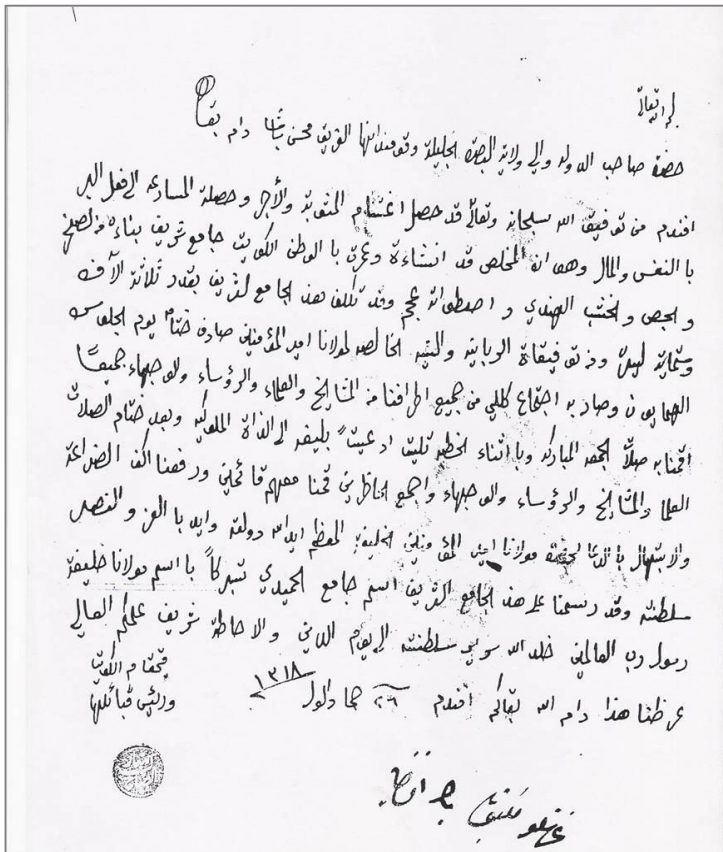 لجانب تعالى
حضرة صاحب الدوله والي ولاية البصرة الجليلة وقومندانها الفريق محسن باشا دام بقاه
افندم من توفيق الله سبحانه وتعالى قد حصل اغتنام المثوبة والأجر وحصلة المسارعه الى فعل البر
با النفس والمال وهو ان المخلص قد انشاءة وعمرة با الوطن الكويت جامع شريف بناءه من لصخر
ولجص ولخشب الهندي و اصطوانة عجم وقد تكلف هذ الجامع لشريف بقدر ثلاثة الآف
وستماية ليرة ومن توفيقاة الربانيه والنيه الخالصه لمولانا امير المؤمنين صادف ختامه يوم الجلوس
الهمايون وصار به اجتماع كلي من جميع اطرافنا من المشايخ والعلماء والرؤساء ولوجهاء جميعاً
اقمنا به صلاة الجمعه المباركه وبا اثناء الخطبه تليت ادعيتاً بليغه الى الذاة الملوكيه وبعد ختام الصلاة
العلما والمشايخ والرؤساء والوجهاء واجمع الحاظرين قمنا معهم قائمين ورفعنا اكف الضراعة
والابتهال بالدعا لحضرة مولانا امير المؤمنين الخليفة المعظم ايد الله دولته وايده با العز والنصر
سلطنته وقد رسمنا على هذ الجامع الشريف اسم جامع الحميدي تبركاً با اسم مولانا خليفة
رسول رب العالمين خلد الله سرير سلطنته الى يوم الدين والاحاطة شريف علمكم العالي
عرظنا هذا دام الله بقاكم افندم ٢٦ جما دالول ١٣١٨
قيمقام الكويت
ورئيس قبائلها